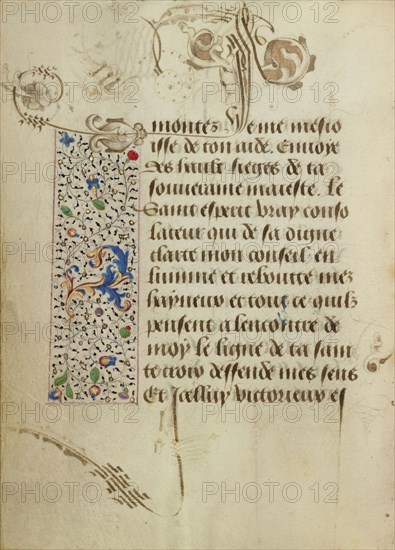 montez Je me mesco
isse de ton aide. Envoye
des haulz sieges de ta
souveraine maieste. Le
Saint esperit vray conso
lateur qui de sa digne
clarte mon conseil en
lumine et reboutte mes
hayneux et tout ce quilz
pensent a lencontre de
moy le signe de ta sain
te croix deffende mes sens
Et Icelluy victorieux es
PHOTO12